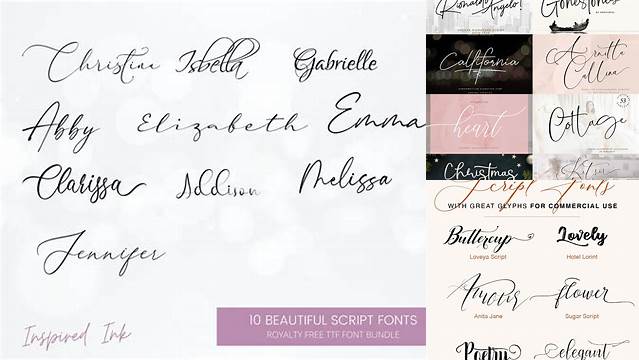 Christina Isbella Gabrielle
Abby Elizabeth Emma
Clarissa Addison Melissa
Jennifer
Inspired Ink
10 BEAUTIFUL SCRIPT FONTS
ROYALTY FREE TTF FONT BUNDLE
Ronaldo Angelo!
Gonestones
California
Arnitta
Callina
heart
Cottage
Christmas
Script Fonts
WITH GREAT GLYPHS FOR COMMERCIAL USE
Buttercup
Lovely
Loveya Script
Hotel Lorint
Amour
flower
Anita Jane
Sugar Script
Poetry
elegant